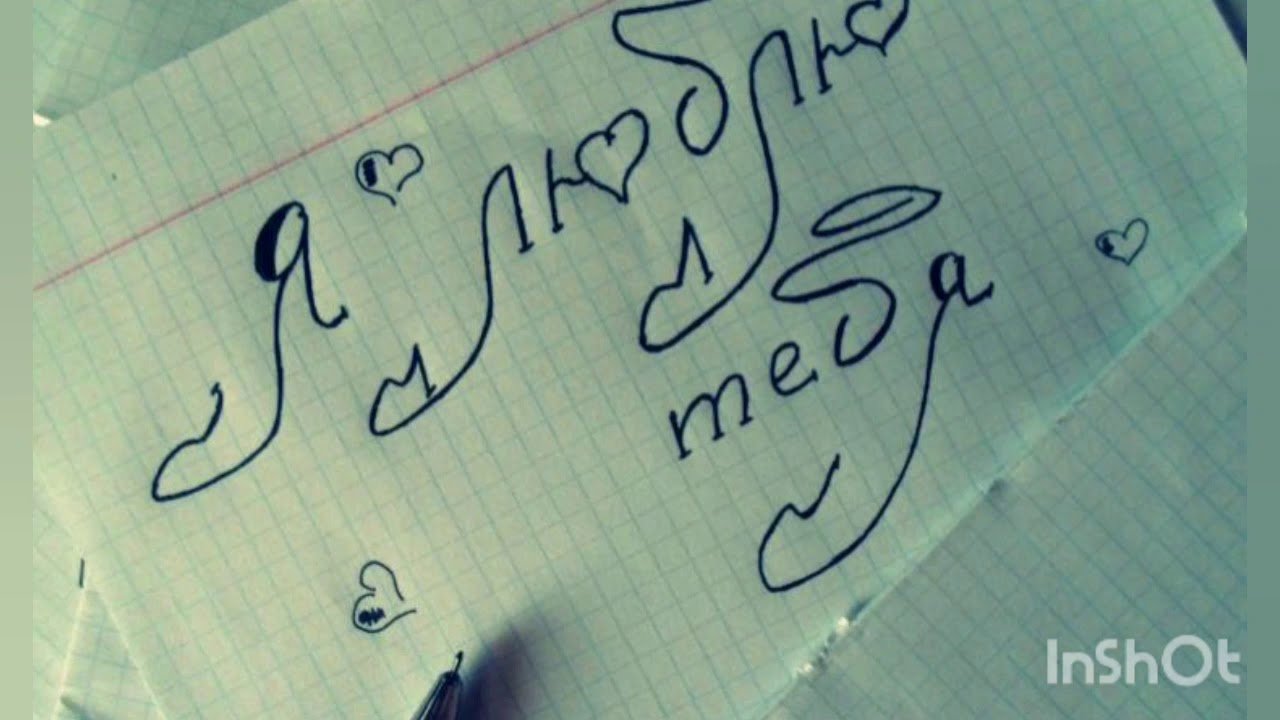 Я люблю
тебя
InShOt